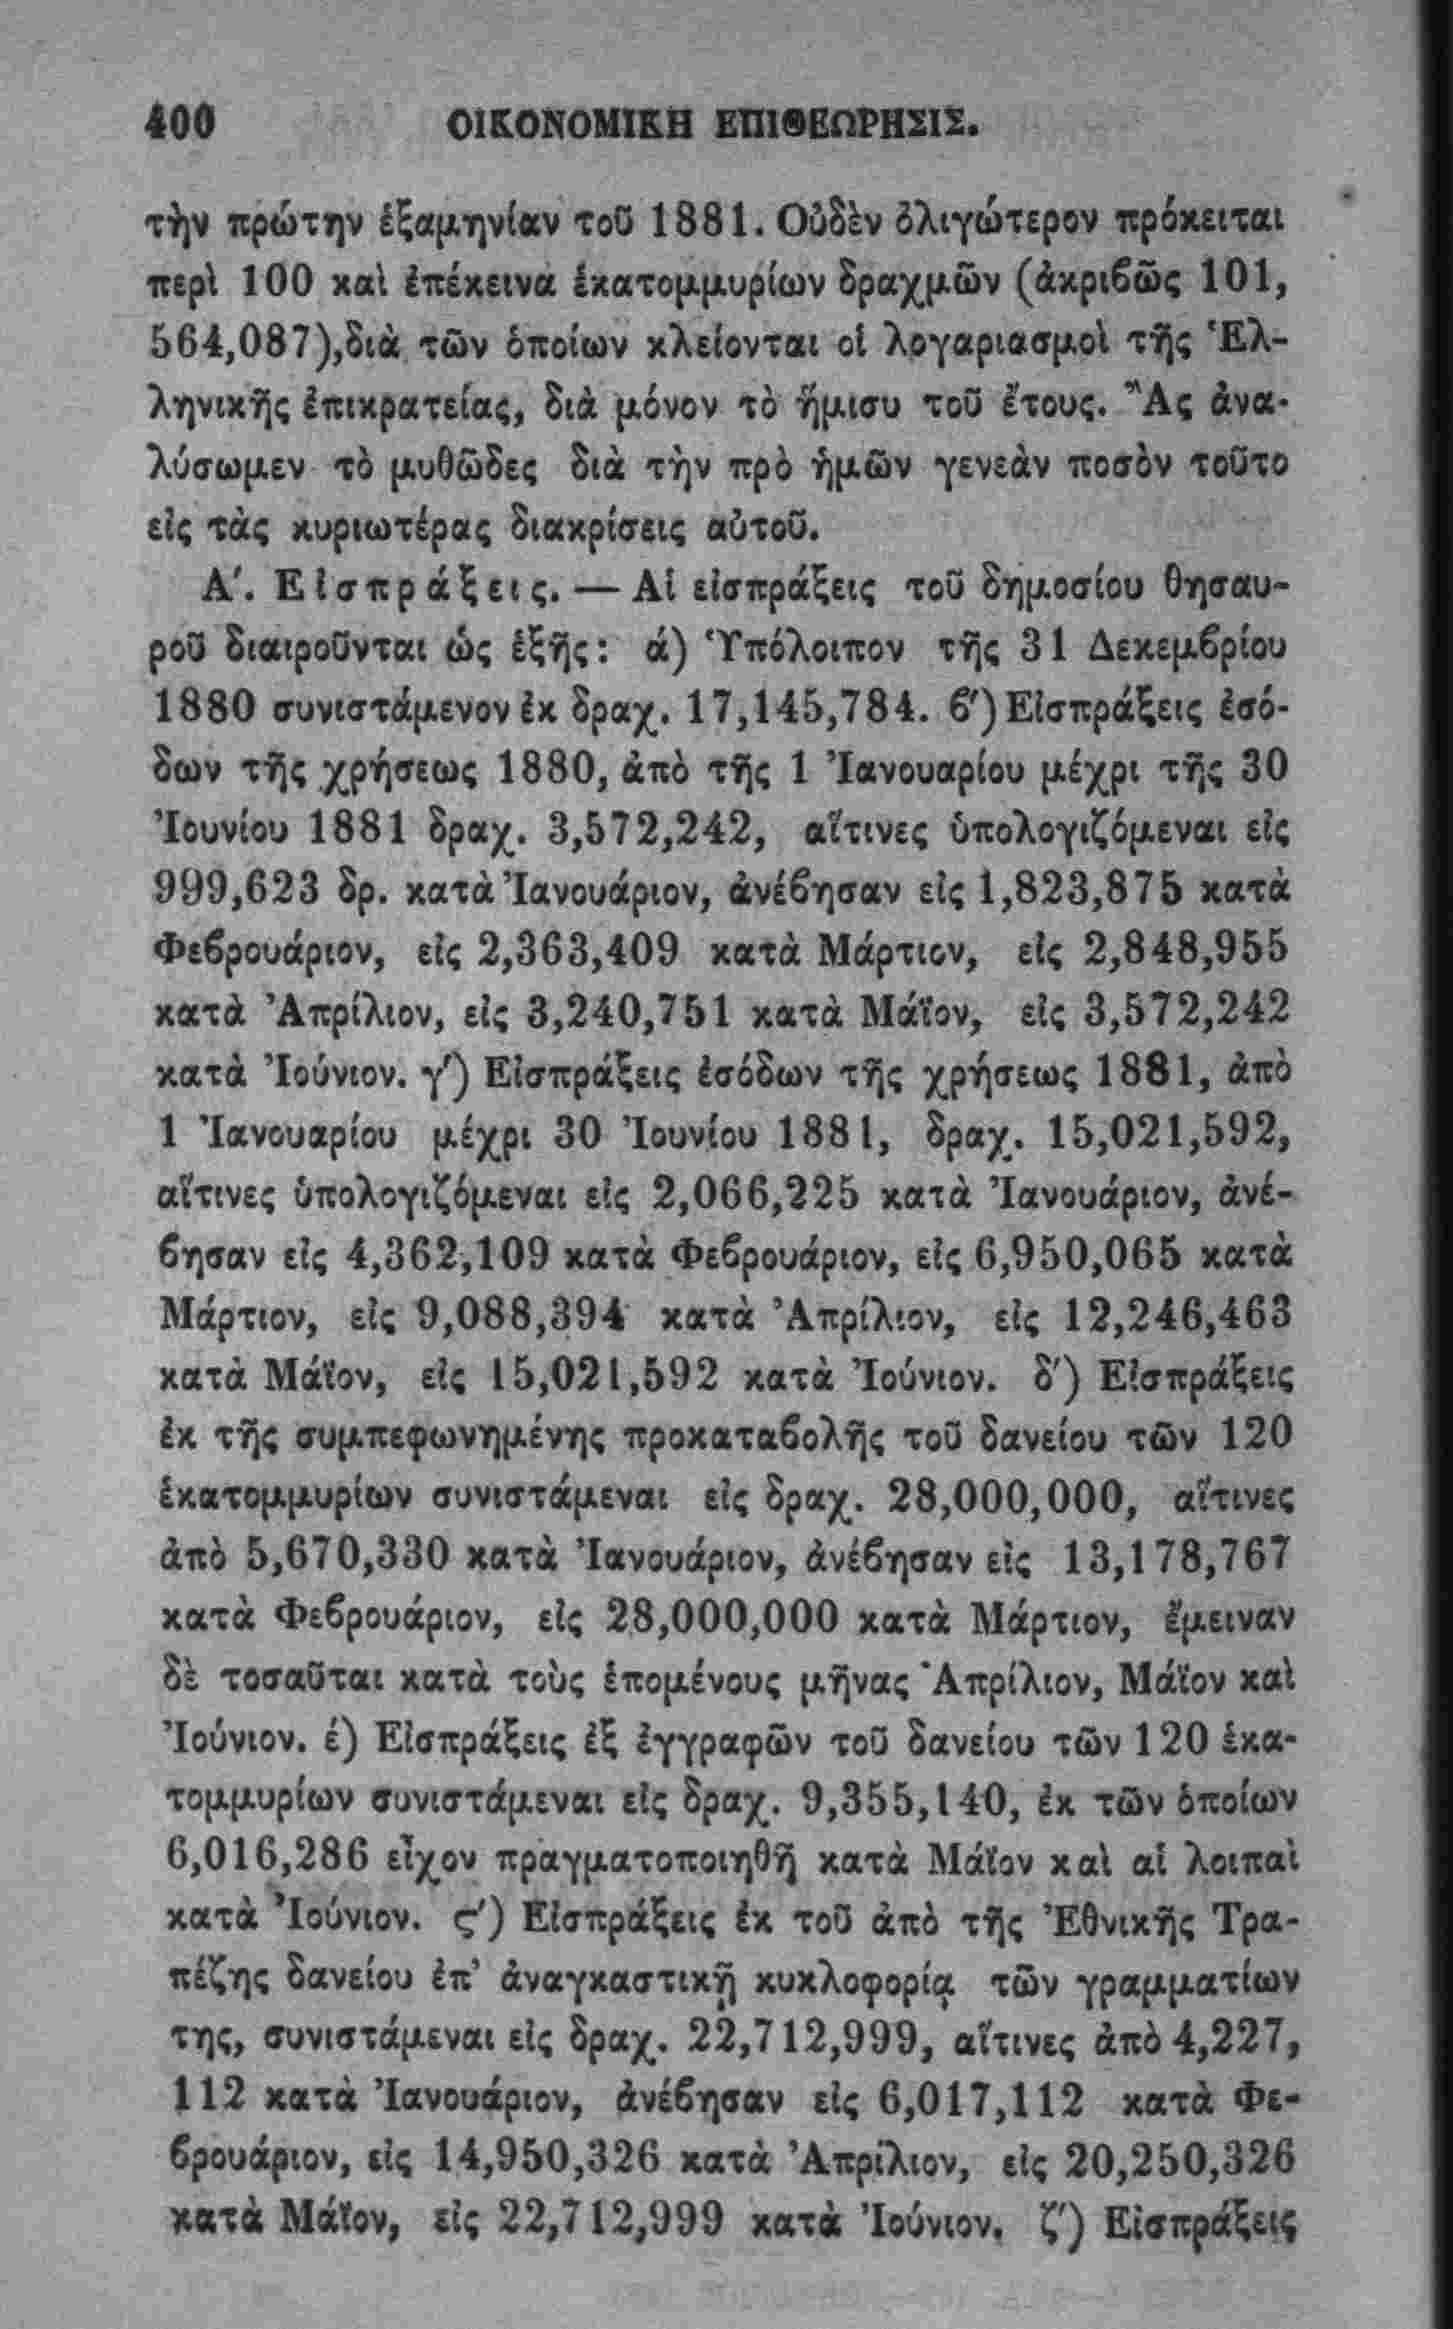 400 ΟΙΚΟΝΟΜΙΚΗ ΕΠΙΘΕΩΡΗΣΙΣ.
τὴν πρώτην ἑξαμηνίαν τοῦ 1881. Οὐδὲν ὀλιγώτερον πρόκειται
περὶ 100 καὶ ἐπέκεινα ἑκατομμυρίων δραχμῶν (ἀκριβῶς 101,
564,087),διὰ τῶν ὁποίων κλείονται οἱ λογαριασμοὶ τῆς Ἑλ-
ληνικῆς ἐπικρατείας, διὰ μόνον τὸ ἥμισυ τοῦ ἔτους. Ἂς ἀνα-
λύσωμεν τὸ μυθῶδες διὰ τὴν πρὸ ἡμῶν γενεὰν ποσὸν τοῦτο
εἰς τὰς κυριωτέρας διακρίσεις αὐτοῦ.
Α΄. Εἰσπράξεις. — Αἱ εἰσπράξεις τοῦ δημοσίου θησαυ-
ροῦ διαιροῦνται ὡς ἑξῆς: ά) Ὑπόλοιπον τῆς 31 Δεκεμβρίου
1880 συνιστάμενον ἐκ δραχ. 17,145,784. β΄) Εἰσπράξεις ἐσό-
δων τῆς χρήσεως 1880, ἀπὸ τῆς 1 Ἰανουαρίου μέχρι τῆς 30
Ἰουνίου 1881 δραχ. 3,572,242, αἵτινες ὑπολογιζόμεναι εἰς
999,623 δρ. κατὰ Ἰανουάριον, ἀνέβησαν εἰς 1,823,875 κατὰ
Φεβρουάριον, εἰς 2,363,409 κατὰ Μάρτιον, εἰς 2,848,955
κατὰ Ἀπρίλιον, εἰς 3,240,751 κατὰ Μάϊον, εἰς 3,572,242
κατὰ Ἰούνιον. γ΄) Εἰσπράξεις ἐσόδων τῆς χρήσεως 1881, ἀπὸ
1 Ἰανουαρίου μέχρι 30 Ἰουνίου 1881, δραχ. 15,021,592,
αἵτινες ὑπολογιζόμεναι εἰς 2,066,225 κατὰ Ἰανουάριον, ἀνέ-
βησαν εἰς 4,362,109 κατὰ Φεβρουάριον, εἰς 6,950,065 κατὰ
Μάρτιον, εἰς 9,088,394 κατὰ Ἀπρίλιον, εἰς 12,246,463
κατὰ Μάϊον, εἰς 15,021,592 κατὰ Ἰούνιον. δ΄) Εἰσπράξεις
ἐκ τῆς συμπεφωνημένης προκαταβολῆς τοῦ δανείου τῶν 120
ἑκατομμυρίων συνιστάμεναι εἰς δραχ. 28,000,000, αἵτινες
ἀπὸ 5,670,330 κατὰ Ἰανουάριον, ἀνέβησαν εἰς 13,178,767
κατὰ Φεβρουάριον, εἰς 28,000,000 κατὰ Μάρτιον, ἔμειναν
δὲ τοσαῦται κατὰ τοὺς ἑπομένους μῆνας Ἀπρίλιον, Μάϊον καὶ
Ἰούνιον. έ) Εἰσπράξεις ἐξ ἐγγραφῶν τοῦ δανείου τῶν 120 ἑκα-
τομμυρίων συνιστάμεναι εἰς δραχ. 9,355,140, ἐκ τῶν ὁποίων
6,016,286 εἶχον πραγματοποιηθῆ κατὰ Μάϊον καὶ αἱ λοιπαὶ
κατὰ Ἰούνιον. ς΄) Εἰσπράξεις ἐκ τοῦ ἀπὸ τῆς Ἐθνικῆς Τρα-
πέζης δανείου ἐπ’ ἀναγκαστικῇ κυκλοφορίᾳ τῶν γραμματίων
της, συνιστάμεναι εἰς δραχ. 22,712,999, αἵτινες ἀπὸ 4,227,
112 κατὰ Ἰανουάριον, ἀνέβησαν εἰς 6,017,112 κατὰ Φε-
βρουάριον, εἰς 14,950,326 κατὰ Ἀπρίλιον, εἰς 20,250,326
κατὰ Μάϊον, εἰς 22,712,999 κατὰ Ἰούνιον. ζ΄) Εἰσπράξεις